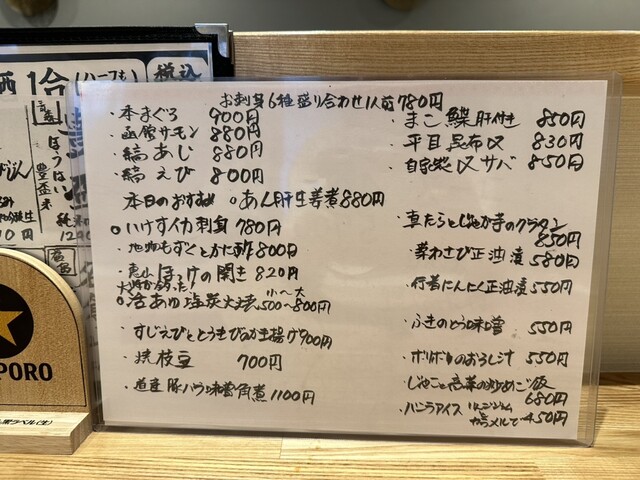 お刺身6種盛り合わせ1人前780円
・本まぐろ 900円
・函館サーモン 880円
・縞あじ 880円
・縞えび 800円
本日のおすすめ ○あん肝生姜煮880円
○いけすイカ刺身 780円
・地物もずくとかに酢 800円
・恵山ほっけの開き 820円
○活あゆ塩炭火焼 小〜大 500〜800円
・すじえびととうきびのかき揚げ900円
・焼枝豆 700円
・道産豚バラ味噌角煮 1100円
・まこ鰈肝付き 850円
・平目昆布〆 830円
・自家製〆サバ 850円
・真たらとじゃが芋のグラタン
850円
・葉わさび正油漬 580円
・行者にんにく正油漬 550円
・ふきのとう味噌 550円
・ボリボリのおろし汁 550円
・じゃこと高菜の炒めご飯
680円
・バニラアイス
カラメルで 450円
1合(ハーフも
税込
ほうはい
豊盃 米
純米
PORO
黒ラベル(生)